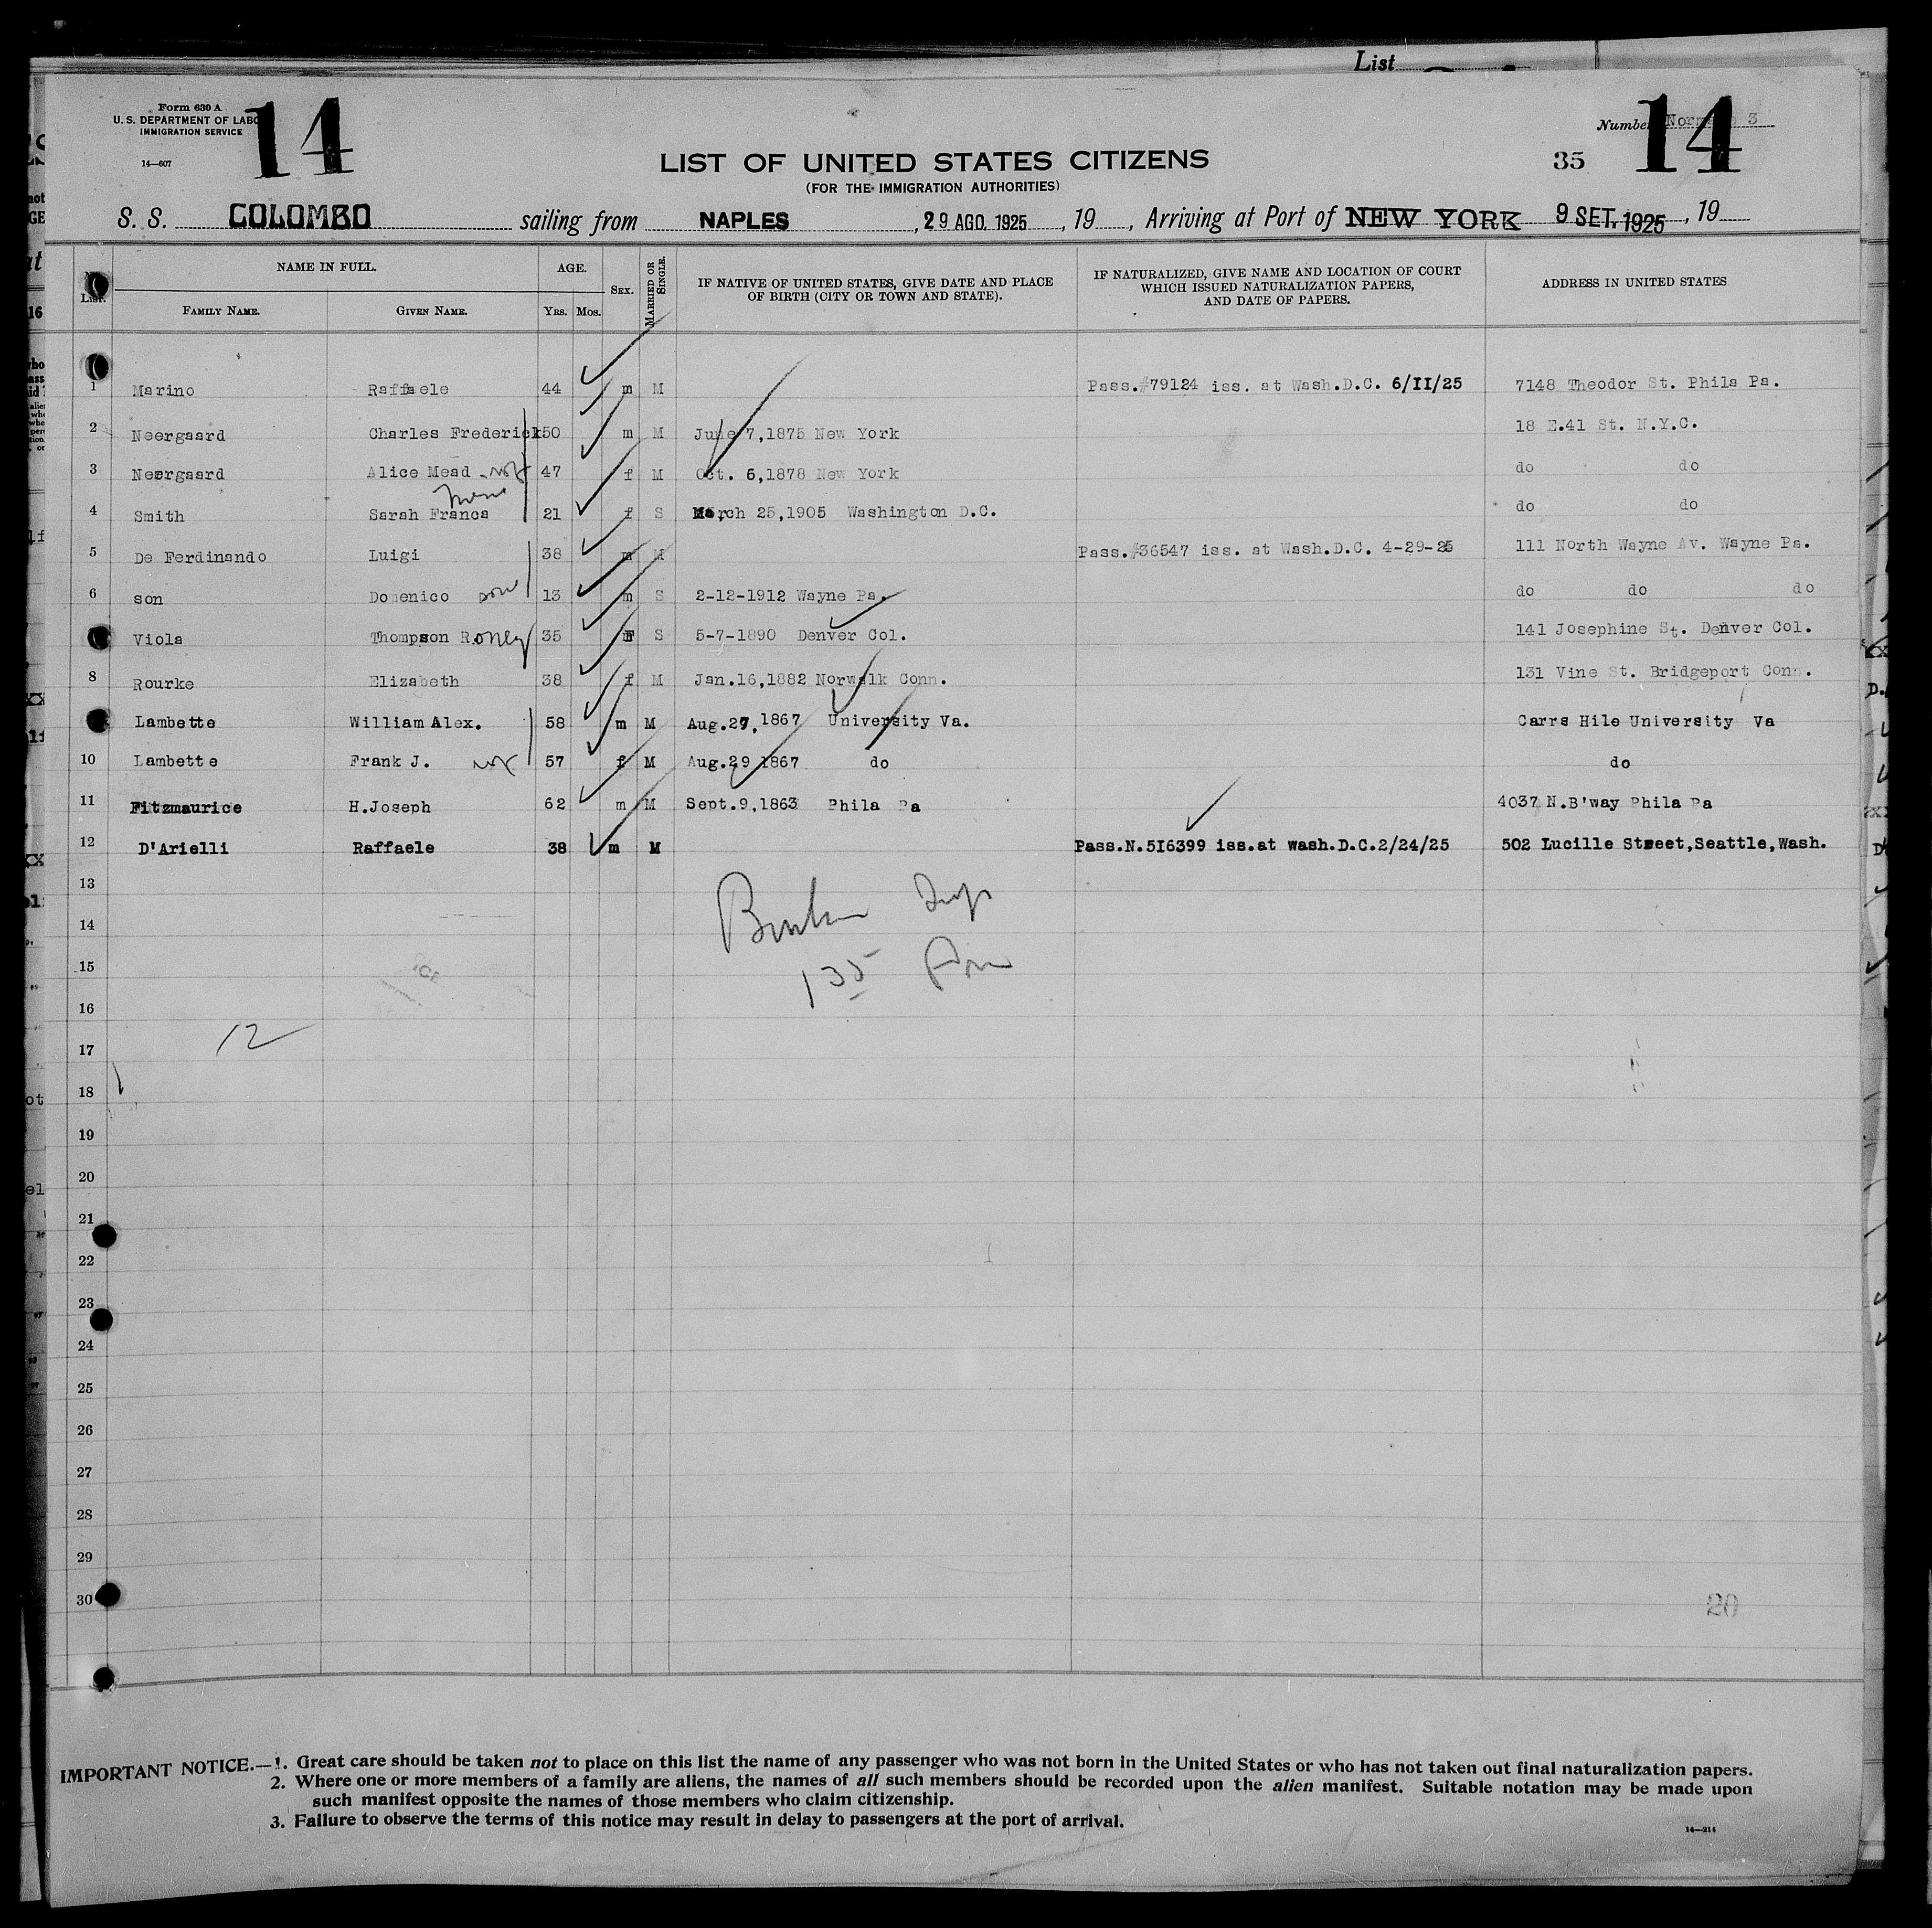 List
Form 630 A
U. S. DEPARTMENT OF LABO
IMMIGRATION SERVICE
14—607
14
Number 3
14
35
LIST OF UNITED STATES CITIZENS
(FOR THE IMMIGRATION AUTHORITIES)
S. S. COLOMBO sailing from NAPLES , 29 AGO. 1925 , 19 , Arriving at Port of NEW YORK 9 SET. 1925 , 19
List. NAME IN FULL. AGE. SEX. MARRIED OR SINGLE. IF NATIVE OF UNITED STATES, GIVE DATE AND PLACE OF BIRTH (CITY OR TOWN AND STATE). IF NATURALIZED, GIVE NAME AND LOCATION OF COURT WHICH ISSUED NATURALIZATION PAPERS, AND DATE OF PAPERS. ADDRESS IN UNITED STATES
FAMILY NAME. GIVEN NAME. YRS. MOS.
1 Marino Raffaele 44 m M Pass.#79124 iss. at Wash.D.C. 6/II/25 7148 Theodor St. Phila Pa.
2 Neergaard Charles Frederick 50 m M June 7,1875 New York 18 E.41 St. N.Y.C.
3 Neergaard Alice Mead 47 f M Oct. 6,1878 New York do do
4 Smith Sarah Franca 21 f S March 25,1905 Washington D.C. do do
5 De Ferdinando Luigi 38 m M Pass.#36547 iss. at Wash.D.C. 4-29-25 111 North Wayne Av. Wayne Pa.
6 son Domenico son 13 m S 2-12-1912 Wayne Pa. do do do
Viola Thompson Roney 35 S 5-7-1890 Denver Col. 141 Josephine St. Denver Col.
8 Rourke Elizabeth 38 f M Jan.16,1882 Norwalk Conn. 131 Vine St. Bridgeport Conn.
Lambette William Alex. 58 m M Aug.27, 1867 University Va. Carrs Hile University Va
10 Lambette Frank J. 57 f M Aug.29 1867 do do
11 Fitzmaurice H.Joseph 62 m M Sept.9,1863 Phila Pa 4037 N.B'way Phila Pa
12 D'Arielli Raffaele 38 m M Pass.N.5I6399 iss.at wash.D.C.2/24/25 502 Lucille Street,Seattle,Wash.
13
14
15
135
16
12
17
18
19
20
21
22
23
24
25
26
27
28
29
30
20
IMPORTANT NOTICE.—1. Great care should be taken not to place on this list the name of any passenger who was not born in the United States or who has not taken out final naturalization papers.
2. Where one or more members of a family are aliens, the names of all such members should be recorded upon the alien manifest. Suitable notation may be made upon
such manifest opposite the names of those members who claim citizenship.
3. Failure to observe the terms of this notice may result in delay to passengers at the port of arrival.
14—214